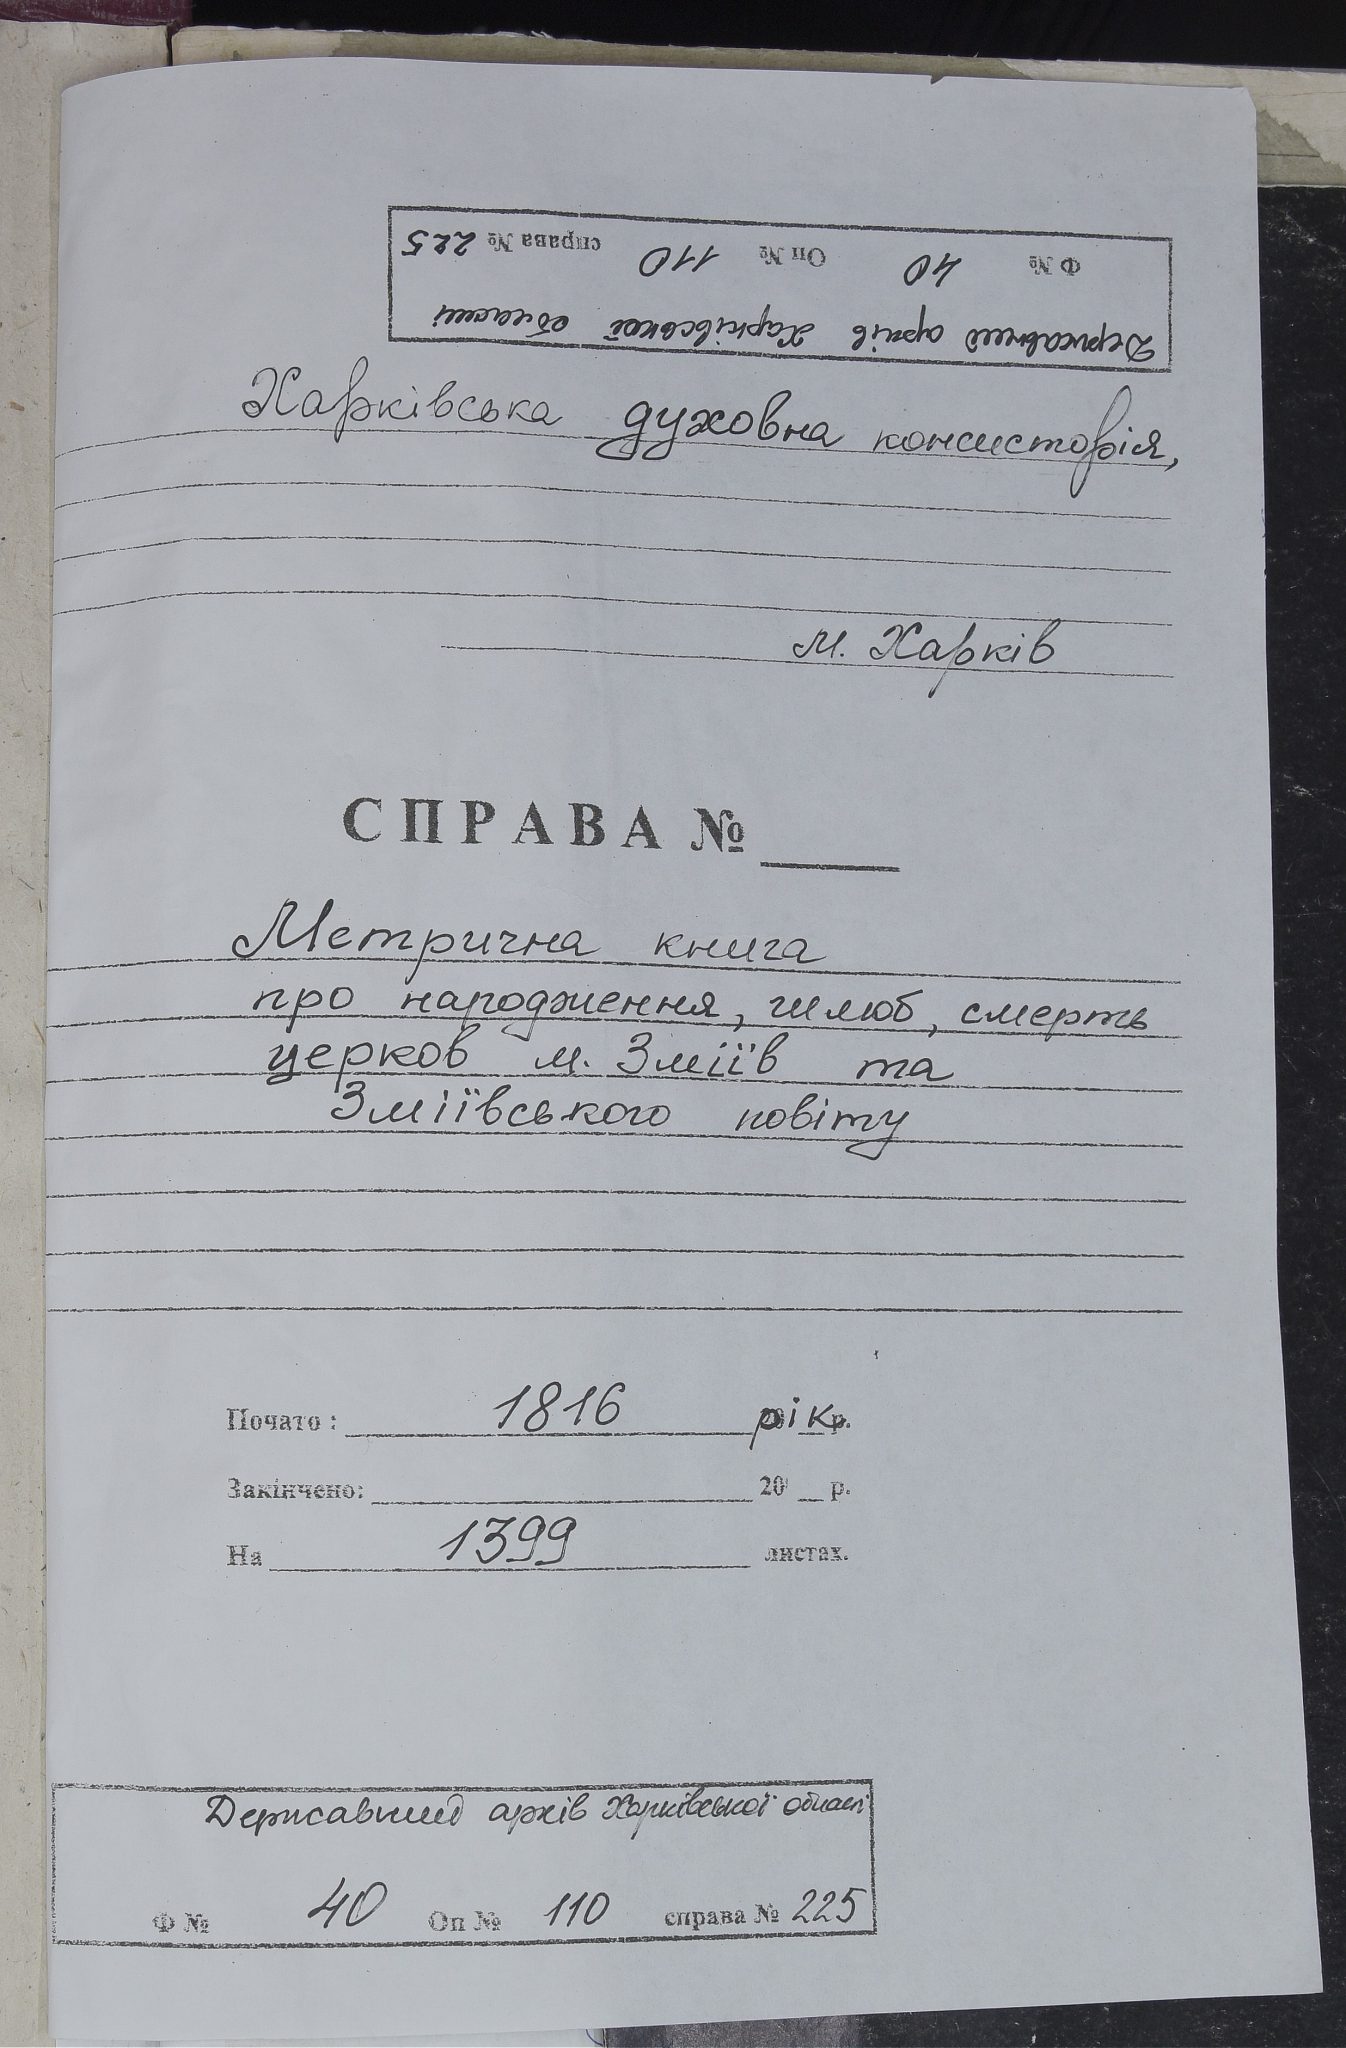 Державний архів Харківської області
Ф № 40 Оп № 110 справа № 225
Харківська духовна консисторія,
м. Харків
СПРАВА № ____
Метрична книга
про народження, шлюб, смерть
церков м. Зміїв та
Зміївського повіту
Почато : 1816 рік р.
Закінчено: 20 __ р.
На 1399 листах.
Державний архів Харківської області
Ф № 40 Оп № 110 справа № 225